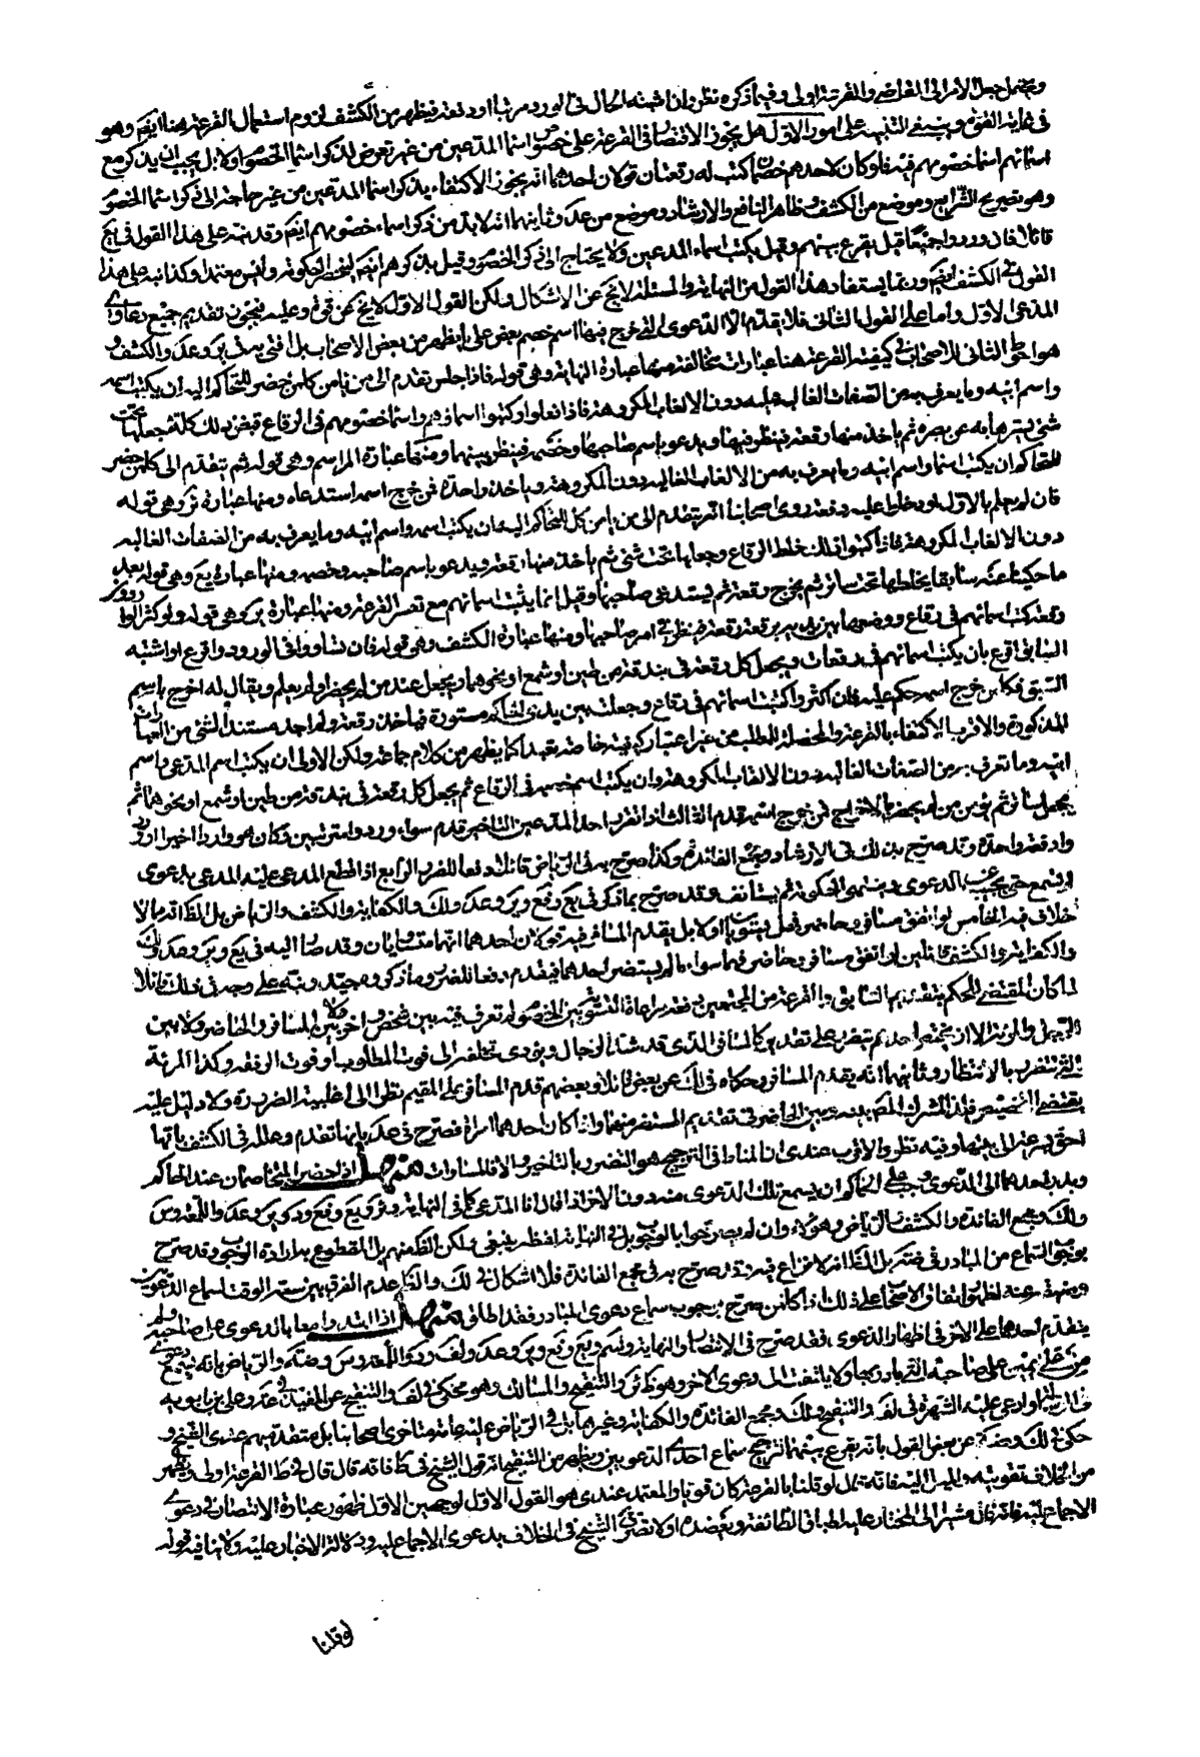 ويحتمل جعل الامر الى القاضي والقرعة اولى وفيما ذكره نظر وان اشتبه الحال في الورود مرتبا او دفعة فيظهر من الكشف لزوم استعمال القرعة هنا ايضا وهو
في غاية القوة وينبغي التنبيه على امور الاول هل يجوز الاقتصار في القرعة على خصوص اسماء المدعين من غير تعرض لذكر اسماء الخصوم او لا بل يجب ان يذكر مع
اسمائهم اسماء خصومهم فيه فلو كان لاحدهم خصمان كتب له رقعتان قولان احدهما انه يجوز الاكتفاء بذكر اسماء المدعين من غير حاجة الى ذكر اسماء الخصوم
وهو تصريح الشرايع وموضع من الكشف وظاهر النافع والارشاد وموضع من عد وثانيهما انه لا بد من ذكر اسماء خصومهم ايضا وقد نبه على هذا القول في يع
قائلا فان وردوا جميعا قيل يقرع بينهم وقيل يكتب اسماء المدعين ولا يحتاج الى ذكر الخصوم وقيل يذكرهم ايضا لتحضر الحكومة وليس معتمدا وكذا نبه على هذا
القول في الكشف ايضا وربما يستفاد هذا القول من النهاية والمسئلة لا يخ عن الاشكال ولكن القول الاول لا يخ عن قوة وعليه فيجوز تقديم جميع دعاوي
المدعي الاول واما على القول الثاني فلا يقدم الا الدعوى التي خرج فيها اسم خصم بعض على ما يظهر من بعض الاصحاب بل
هو احوط الثاني للاصحاب في كيفية القرعة هنا عبارات مختلفة منها عبارة النهاية وهي قوله فاذا جلس تقدم الى من يامر كل من حضر للتحاكم اليه ان يكتب اسمه
واسم ابيه وما يعرف به من الصفات الغالبة عليه دون الالقاب المكروهة فاذا فعلوا وكتبوا اسمائهم واسماء خصومهم في الرقاع قبض ذلك كله ثم جعلها تحت
شئ يسترها به عن بصره ثم ياخذ منها رقعة فينظر فيها ويدعو باسم صاحبها وخصمه فينظر بينهما ومنها عبارة المراسم وهي قوله ثم يتقدم الى كل من حضر
للتحاكم ان يكتب اسمه واسم ابيه وما يعرف به من الالقاب الغالبة دون المكروهة وياخذ واحدة فمن خرج اسمه استدعاه ومنها عبارة ئر وهي قوله
فان لم يعلم بالاول او دخلوا عليه دفعة روى اصحابنا انه يتقدم الى من يامر كل من التحاكم اليه ان يكتب اسمه واسم ابيه وما يعرف به من الصفات الغالبة
دون الالقاب المكروهة فاذا كتبوا ذلك خلط الرقاع وجعلها تحت شئ ثم ياخذ منها رقعة ويدعو باسم صاحبه وخصمه ومنها عبارة يع وهي قوله بعد
ما حكينا عنه سابقا يخلطها تحت ساتر ثم يخرج رقعة ثم يستدعي صاحبها وقيل انما يثبت اسمائهم مع تعسر القرعة ومنها عبارة ير وهي قوله ولو كثر الواردون
رقعة كتب اسمائهم في رقاع ووضعها بين يديه ير رقعة رقعة فينظر في امر صاحبها ومنها عبارة الكشف وهي قوله فان تساووا في الورود واقرع او اشتبه
السابق اقرع بان يكتب اسمائهم في رقعات ويجعل كل رقعة في بندقة من طين او شمع او نحوهما ويجعل عند من لم يحضر او لم يعلم ويقال له اخرج باسم
السبق فكل من خرج اسمه حكم عليه فان كثروا كتبت اسمائهم في رقاع وجعلت بين يدي الحاكم مستورة فياخذ رقعة ولم اجد مستندا لشئ من العبارات
المذكورة والاقرب الاكتفاء بالقرعة المحصلة للمطلب من غير اعتبار كيفية خاصة تعبدا كما يظهر من كلام جماعة ولكن الاولى ان يكتب اسم المدعي باسم
ابيه وما تعرف به من الصفات الغالبة دون الالقاب المكروهة وان يكتب اسم خصمه في الرقاع ثم يجعل كل رقعة في بندقة من طين او شمع او نحوهما ثم
يجعل ساتر ثم يؤمر من لم يحضر بالاخراج فمن خرج اسمه قدم الثالث اذا تفرد احد المدعين التاخير قدم سواء وردوا مترتبين وكان هو واردا اخيرا او ورد
وا دفعة واحدة وقد صرح بذلك في الارشاد ومجمع الفائدة وكذا صرح به في الرياض قائلا دفعا للضرر الرابع اذا قطع المدعى عليه المدعي بدعوى
لم يسمع حتى يجيب عن الدعوى وينتهي الحكومة ثم يستانف وقد صرح بما ذكر في يع وفع وير وعد ولك والكفاية والكشف والرياض بل الظ انه مما لا
خلاف فيه الخامس لو اتفق مسافر وحاضر فهل يستويان او لا بل يقدم المسافر فيه قولان احدهما انهما متساويان وقد صار اليه في يع وير وعد ولك
والكفاية والكشف قائلين اذا اتفق مسافر وحاضر فهما سواء ما لم يستضر احدهما فيقدم دفعا للضرر وما ذكروه جيد ونبه على وجهه في ذلك قائلا
لما كان المقتضي للحكم بتقديم السابق والقرعة من المجتمعين دفعة مراعاة التسوية بين الخصوم لم تعرف فيه بين شخص واخر ولا بين المسافر والحاضر ولا بين
الرجل والمرئة الا ان يختص احدهم بتضرر على تقدير كالمسافر الذي قد شد الرحال ويؤدي تخلفه الى فوت المطلوب او فوت الرفقة وكذا المرئة
التي تتضرر بالانتظار وثانيهما انه يقدم المسافر وحكاه في لك عن بعض قائلا وبعضهم قدم المسافر على المقيم نظرا الى اغلبية الضررة ولا دليل عليه
يقتضي التخصيص فان اشترك الضرر بينه وبين الحاضر في تقديم المستضر منهما واذا كان احدهما امراة فصرح في عد بانها تقدم وعلله في الكشف بانها
احق بهرعة الى بيتها وفيه نظر والاقرب عندي ان المناط في الترجيح هو التضرر بالتاخير والا فالمساوات منهل اذا حضر المتخاصمان عند الحاكم
وبدر احدهما الى الدعوى وجب على الحاكم ان يسمع تلك الدعوى منه دون الاخر اذا قال انا المدعي كما في النهاية وئر ويع وفع ود وير وعد واللمعة وس
ولك ومجمع الفائدة والكشف والرياض وهؤلاء وان لم يصرحوا بالوجوب بل في النهاية لفظ ينبغي ولكن الظ منهم بل المقطوع به ارادة الوجوب وقد صرح
بوجوب السماع من المبادر في ضة بل الظ انه لا نزاع فيه وقد صرح به في مجمع الفائدة فلا اشكال في ذلك والظ عدم الفرق بين سعة الوقت لسماع الدعويين
وضيقه عنه لظهور اتفاق الاصحاب على ذلك اذ كل من صرح بوجوب سماع دعوى المبادر فقد اطلق منهل اذا ابتدروا معا بالدعوى على صاحبه ولم
يتقدم احدهما على الاخر في اظهار الدعوى فقد صرح في الانتصار والنهاية وسم ويع وفع وير وعد ولف ود واللمعة وس وضة والرياض بانه يسمع دعوى
من على يمين على صاحبه التي بادر بها ولا يلتفت الى دعوى الاخر وهو ظ ئر والتنقيح والمسالك وهو محكي في لف والتنقيح عن المفيد وعن علي بن بابويه
في الرسالة وادعى عليه الشهرة في لف والتنقيح ولك ومجمع الفائدة والكفاية وغيرها بل في الرياض عليه عامة متاخري اصحابنا بل متقدميهم عدى الشيخ و
حكي في لك وضة عن بعض القول بانه يقرع بينهما لترجيح سماع احدى الدعويين ويظهر من التنقيح انه قول الشيخ في ط فانه قال قال في ط القرعة اولى ويظهر
من الخلاف تقويته والميل اليه فانه قال لو قلنا بالقرعة كان قويا والمعتمد عندي هو القول الاول لوجهين الاول ظهور عبارة الانتصار في دعوى
الاجماع عليه فانه قال مشيرا الى المختار عليه اطباق الطائفة ويعضده اولا تصريح الشيخ في الخلاف بدعوى الاجماع عليه ودلالة الاخبار عليه ولا ينافيه قوله
لو قلنا